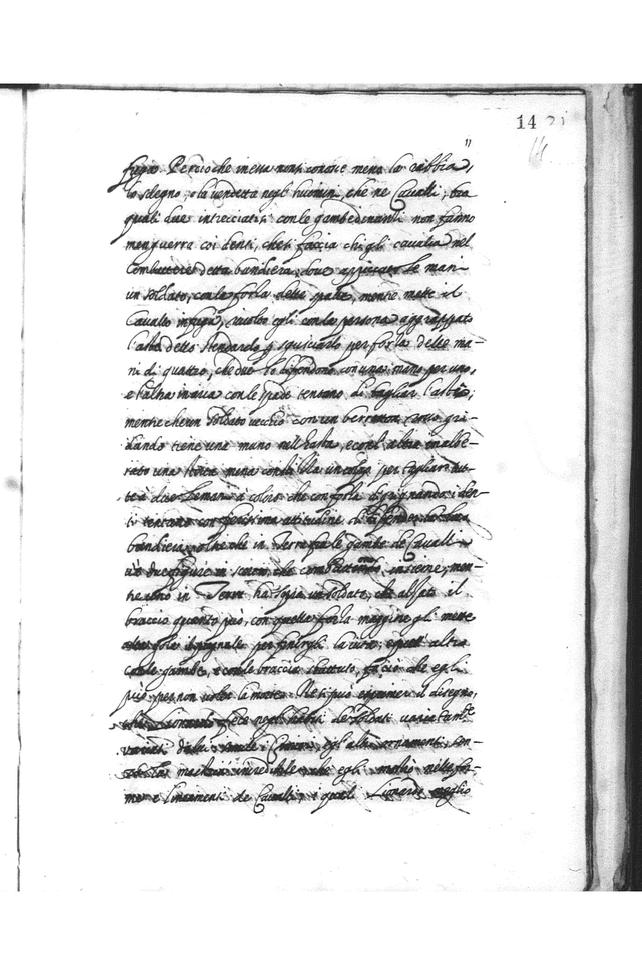 14 21
fuga. Percioche in essa non si conosce meno la rabbia,
lo sdegno, e la vendetta negli huomini, che ne Cavalli, tra
quali due intrecciatisi con le gambe dinanti non fanno
men guerra coi denti, che si faccia chi gli cavalca nel
combattere detta bandiera; dove appiccato le mani
un soldato, con la forza delle spalle, mentre mette il
Cavallo in fuga, rivolto egli con la persona aggrappato
l'asta dello stendardo p sgusciarlo per forza delle ma-
ni di quattro, che due lo difendono con una mano per uno,
e l'altra in aria con le spade tentano di tagliar l'asta;
mentre che un soldato vecchio con un berretton rosso gri-
dando tiene una mano nell'hasta, e con l'altra inalbe-
rato una storta mena con stizza un colpo per tagliar tut-
te a due le mani a coloro che con forza digrignando i den-
ti tentano con fierissima attitudine di difender la loro
bandiera; oltre che in Terra fra le gambe de Cavalli
v'è due figure in scorto, che combattendo insieme, men-
tre uno in Terra ha sopra un soldato, che alzato il
braccio quanto può, con quella forza maggiore gli mette
alla gola il pugnale per finirgli la vita, e quell'altro
con le gambe, e con le braccia sbattuto, fa ciò che egli
può per non voler la morte. Ne si può esprimer il disegno,
che Lionardo fece negli habiti de soldati variatamte
variati da lui simile i Cimieri, e gli altri ornamenti sen-
za la maestria incredibile che egli mostrò nelle for-
me e lineamenti de Cavalli, i quali Lionardo meglio